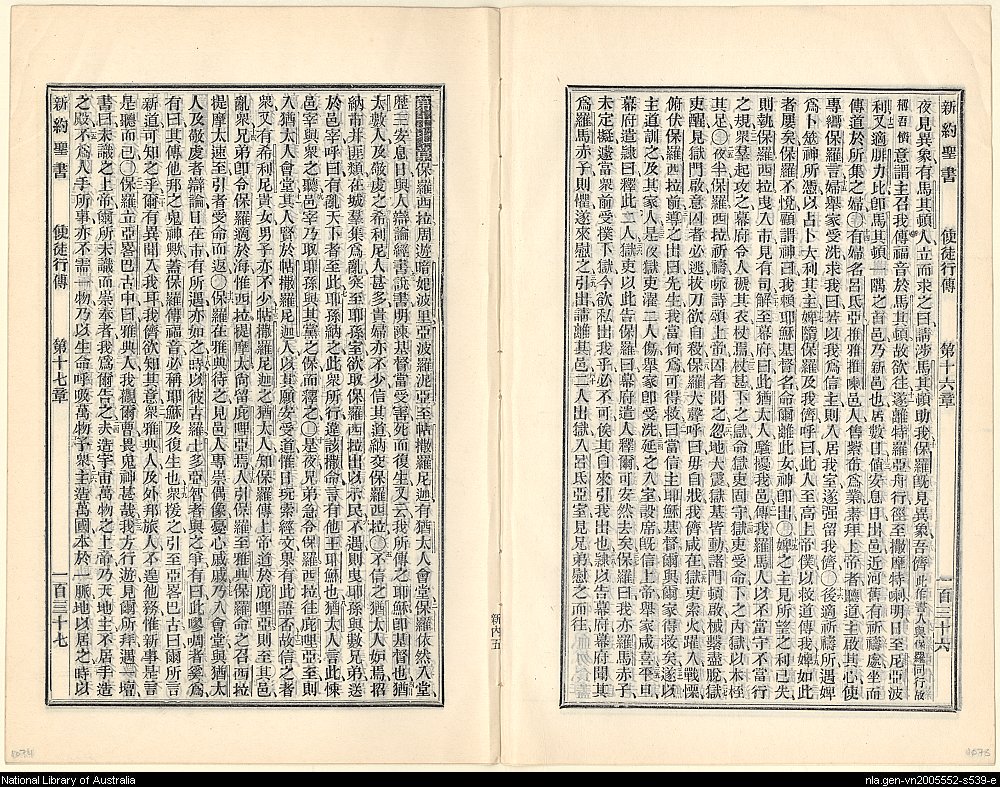 新約聖書 使徒行傳 第十六章 一百三十六
夜見異象有馬其頓人立而求之曰請涉馬其頓助我保羅旣見異象吾儕此作書人與保羅同行故
稱吾儕意謂主召我傳福音於馬其頓故欲往遂離特羅亞舟行徑至撒摩特喇明日至尼亞波
利又適腓力比卽馬其頓一隅之首邑乃新邑也居數日値安息日出邑近河舊有祈禱處坐而
傳道於所集之婦〇有婦名呂氏亞推雅推喇邑人售紫布爲業素拜上帝者聽道主啟其心使
專嚮保羅言婦舉家受洗求我曰若以我爲信主則入居我室遂强留我儕〇後適祈禱所遇婢
爲卜筮神所憑以占卜大利其主婢隨保羅及我儕呼曰此人至高上帝僕以救道傳我婢如此
者屢矣保羅不悅顧謂神曰我賴耶穌基督名命爾離此女神卽出〇婢之主見所望之利已失
則執保羅西拉曳入市見有司解至幕府曰此猶太人騷擾我邑傳我羅馬人以不當守不當行
之規衆羣起攻之幕府令人褫其衣杖焉杖甚下之獄命獄吏固守獄吏受命下之內獄以木桎
其足〇夜半保羅西拉祈禱咏詩頌上帝囚者聞之忽地大震獄基皆動諸門頓啟械繫盡脫獄
吏醒見獄門啟意囚者必逃拔刀欲自殺保羅大聲呼曰毋自戕我儕咸在獄吏索火躍入戰慄
俯伏保羅西拉前導之出曰先生我當何爲可得救曰當信主耶穌基督爾與爾家得救矣遂以
主道訓之及其家人是夜獄吏濯二人傷舉家卽受洗延之入室設席旣信上帝舉家咸喜平旦
幕府遣隸曰釋此二人獄吏以此告保羅曰幕府遣人釋爾可安然去矣保羅曰我亦羅馬赤子
未定擬遽當衆前受撲下獄今欲私出我乎必不可俟其自來引我出也隸以告幕府幕府聞其
爲羅馬赤子則懼遂來慰之引出請離其邑二人出獄入呂氏亞室見兄弟慰之而往
第十七章保羅西拉周遊暗妃波里亞波羅泥亞至帖撒羅尼迦有猶太人會堂保羅依然入堂
歷三安息日與人辯論經書說書明陳基督當受害死而復生又云我所傳之耶穌卽基督也猶
太數人及敬虔之希利尼人甚多貴婦亦不少信其道納交保羅西拉〇不信之猶太人妬焉招
納市井匪類在城羣集爲亂突至耶孫室欲取保羅西拉出以示民不遇則曳耶孫與數兄弟送
於邑宰呼曰有亂天下者至此耶孫納之此衆所行違該撒命言有他王耶穌也猶太人言此悚
邑宰與衆之聽邑宰乃取耶孫與其黨之保而釋之〇是夜兄弟急令保羅西拉往庇哩亞至則
入猶太人會堂其人賢於帖撒羅尼迦人以其願安受道惟日玩索經文果有此語否故信之者
衆又有希利尼貴女男子亦不少帖撒羅尼迦之猶太人知保羅傳上帝道於庇哩亞則至其邑
亂衆兄弟卽令保羅適於海惟西拉提摩太尚留庇哩亞焉人引保羅至雅典保羅命之召西拉
提摩太速至引者受命而返〇保羅在雅典待之見邑人專崇偶像憂心戚戚乃入會堂與猶太
人及敬虔者辯論日在市有所遇亦如之時以彼古羅士多亞智者與之爭有曰此嘐啁者奚爲
有曰其傳他邦之鬼神歟蓋保羅傳福音必稱耶穌及復生也衆援之引至亞畧巴古曰爾所言
新道可知之乎爾有異聞入我耳我儕欲知其意衆雅典人及外邦旅人不遑他務惟新事是言
是聽而已〇保羅立亞畧巴古中曰雅典人我觀爾曹畏鬼神甚哉我方行遊見爾所拜遇一壇
書曰未識之上帝爾所未識而崇奉者我爲爾告之夫造宇宙萬物之上帝乃天地主不居手造
之殿不爲人手所事亦不需一物乃以生命呼吸萬物予衆主造萬國本於一脈地以居之時以
新約聖書 使徒行傳 第十七章 一百三十七
新內五
1073
1074
National Library of Australia
nla.gen-vn2005552-s539-e